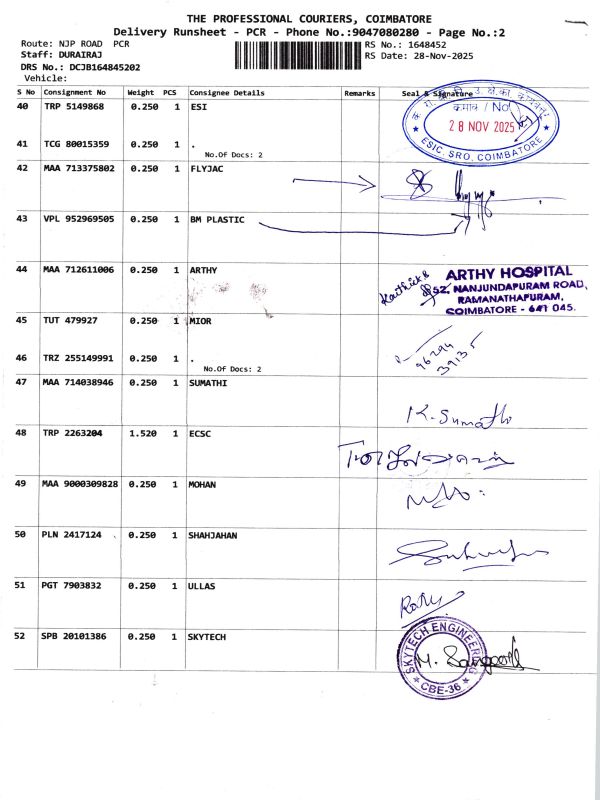 THE PROFESSIONAL COURIERS, COIMBATORE
Delivery Runsheet - PCR - Phone No.:9047080280 - Page No.:2
Route: NJP ROAD PCR
Staff: DURAIRAJ
DRS No.: DCJB164845202
Vehicle:
RS No.: 1648452
RS Date: 28-Nov-2025
S No Consignment No Weight PCS Consignee Details Remarks Seal & Signature
40 TRP 5149868 0.250 1 ESI
क्रमांक / No.
28 NOV 2025
ESIC, SRO, COIMBATORE
41 TCG 80015359 0.250 1 .
No.Of Docs: 2
42 MAA 713375802 0.250 1 FLYJAC
43 VPL 952969505 0.250 1 BM PLASTIC
44 MAA 712611006 0.250 1 ARTHY
ARTHY HOSPITAL
52, NANJUNDAPURAM ROAD,
RAMANATHAPURAM,
COIMBATORE - 641 045.
45 TUT 479927 0.250 1 MIOR
96294
39135
46 TRZ 255149991 0.250 1 .
No.Of Docs: 2
47 MAA 714038946 0.250 1 SUMATHI
K. Sumathi
48 TRP 2263204 1.520 1 ECSC
49 MAA 9000309828 0.250 1 MOHAN
50 PLN 2417124 0.250 1 SHAHJAHAN
51 PGT 7903832 0.250 1 ULLAS
52 SPB 20101386 0.250 1 SKYTECH
SKYTECH ENGINEERING
CBE-36